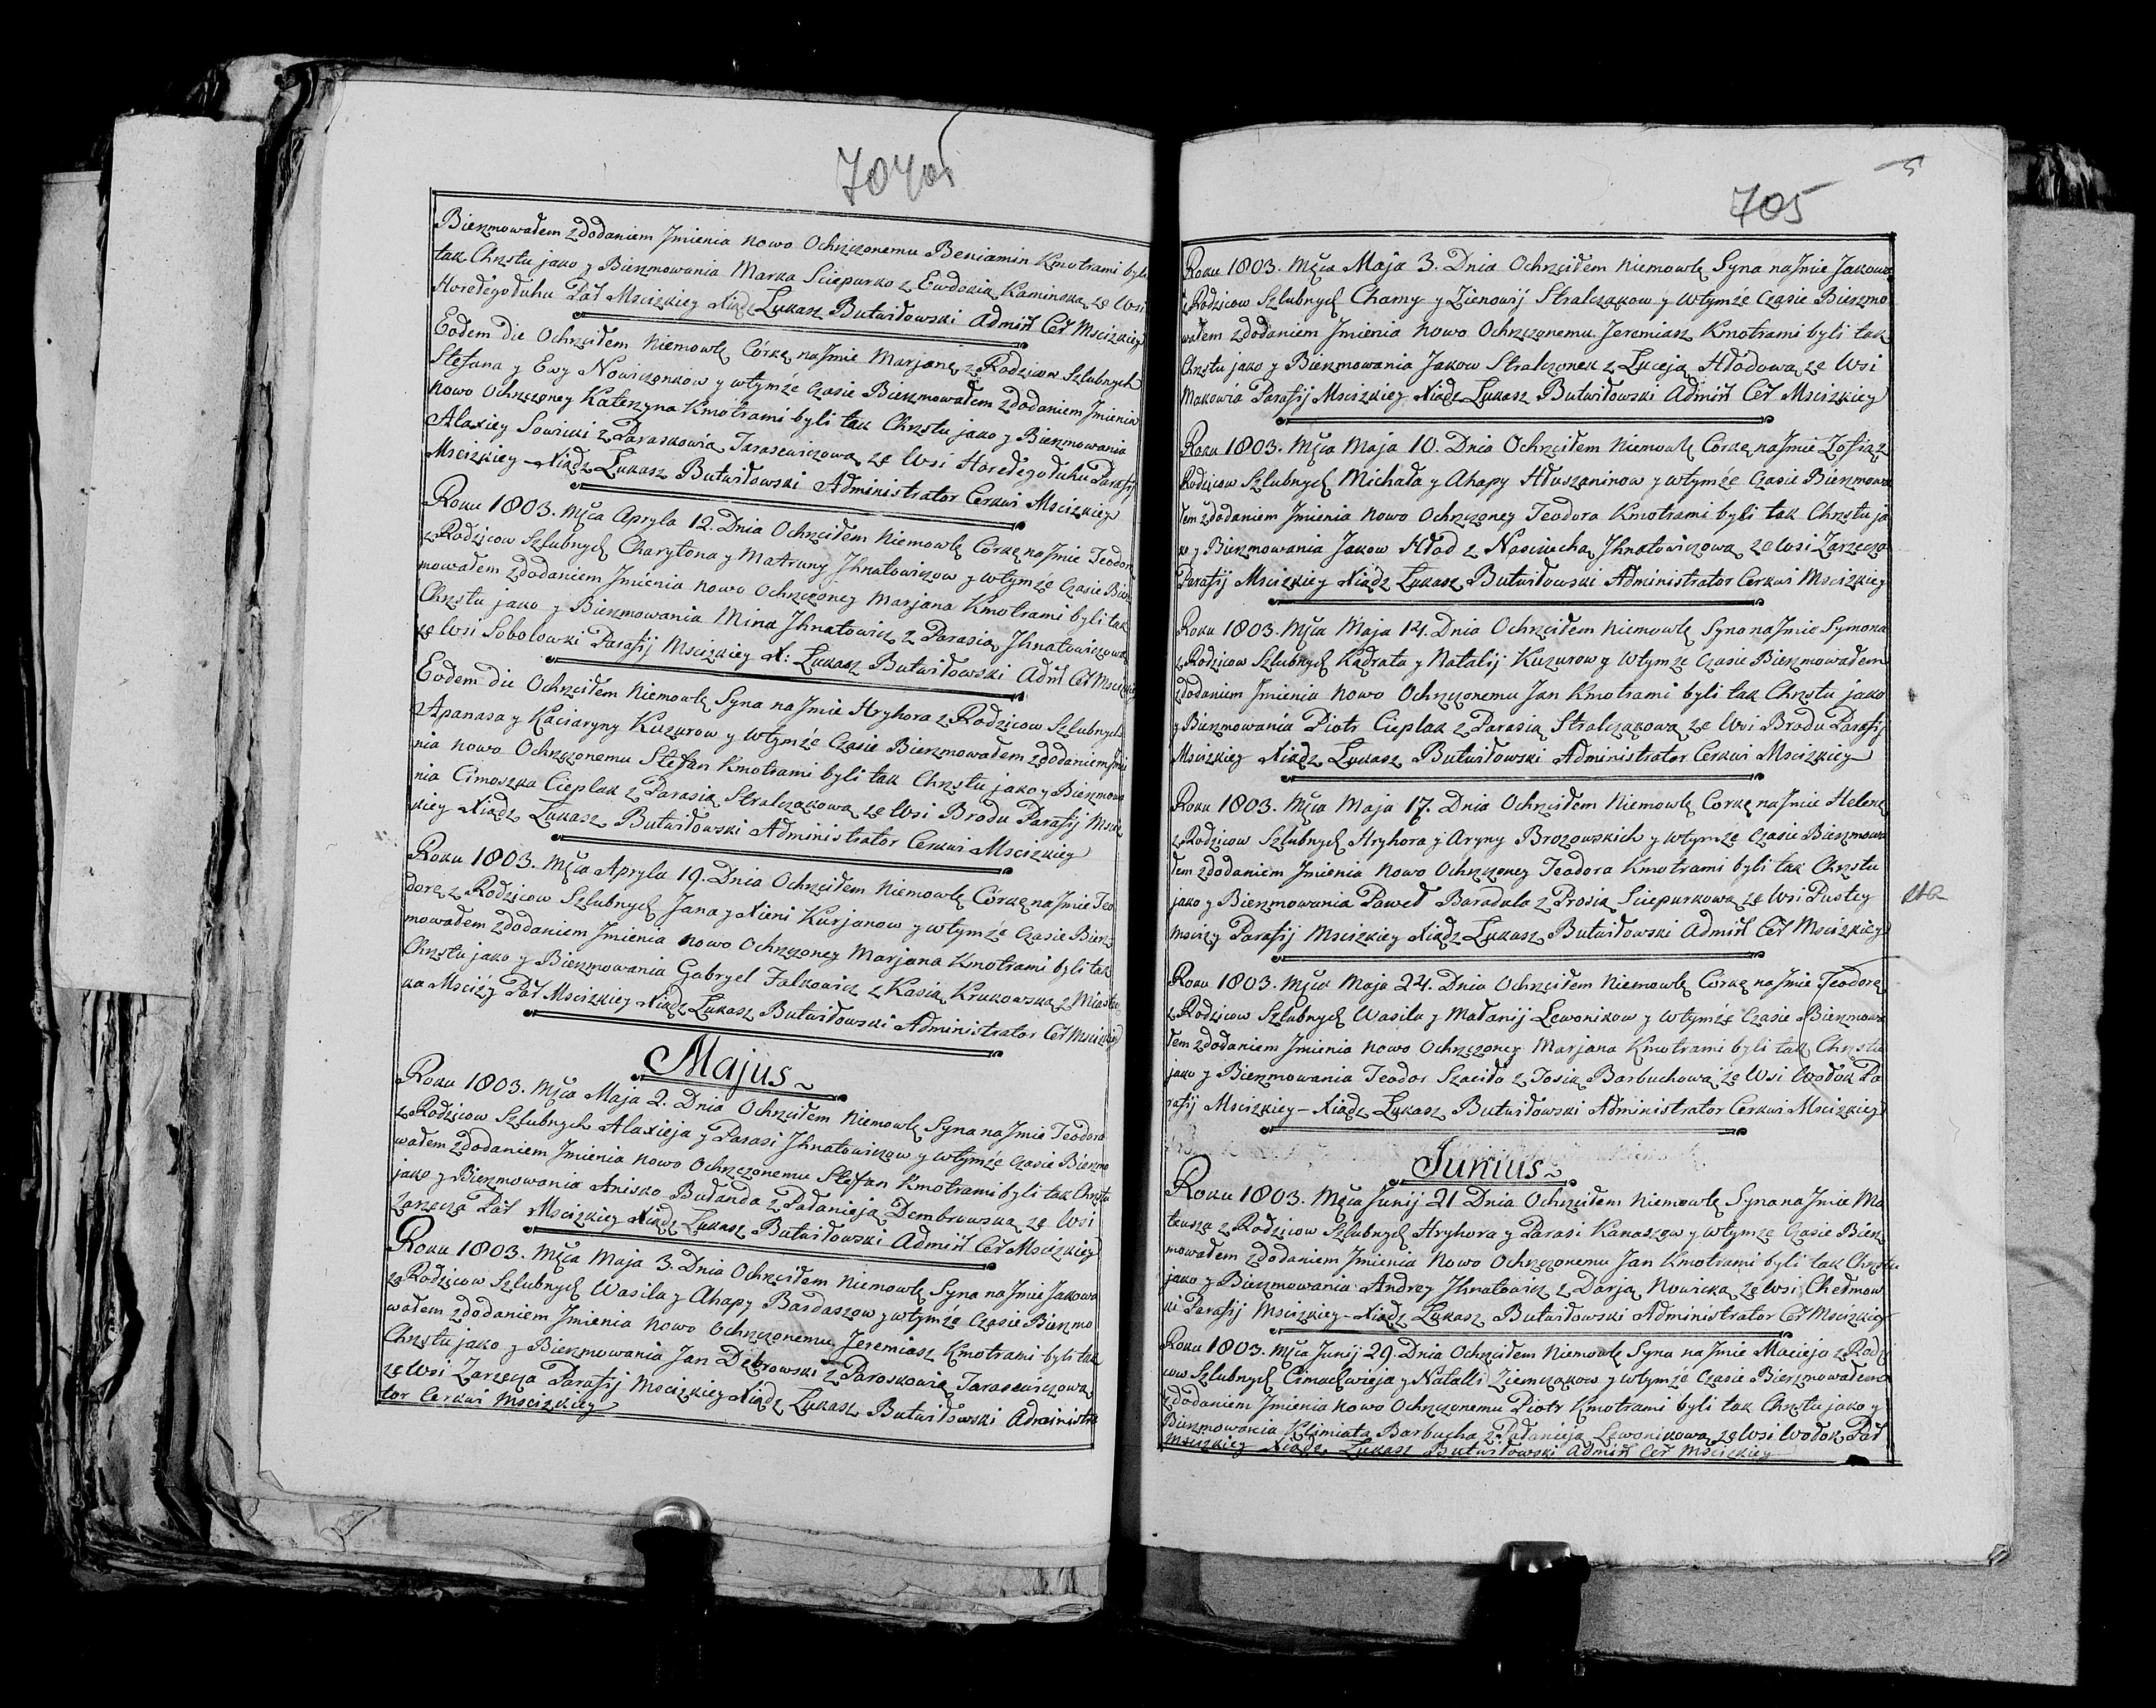 704об
Bierzmowałem z dodaniem Jmienia nowo Ochrzczonemu Beniamin Kmotrami byli
tak Chrztu jako y Bierzmowania Marka Sciepurko z Ewdokią Kaminską ze Wsi
Horełegołuhu Par̃ Mscizkiey Xiądz Łukasz Butwiłowski Admiñ Cer̃ Mscizkiey
Eodem die Ochrzciłem Niemowlę Córkę na Jmie Marjanę z Rodzicow Szlubnych
Stefana y Ewy Nowiczonkow y wtymże czasie Bierzmowałem z dodaniem Jmienia
nowo Ochrzczoney Katerzyna Kmotrami byli tak Chrztu jako y Bierzmowania
Alaxiey Sowicki z Paraskowią Tarasewiczową ze Wsi Horełegołuhu Parafij
Mscizkiey Xiądz Łukasz Butwiłowski Administrator Cerkwi Mscizkiey
Roku 1803. Mṡca Apryla 12. Dnia Ochrzciłem Niemowlę Córkę na Jmie Teodorę
z Rodzicow Szlubnych Charytona y Matruny Jhnatowiczow y wtymże czasie Bierz
mowałem z dodaniem Jmienia nowo Ochrzczoney Marjana Kmotrami byli tak
Chrztu jako y Bierzmowania Mina Jhnatowicz z Parasią Jhnatowiczową
ze Wsi Sobolowki Parafij Mscizkiey X: Łukasz Butwiłowski Adm̃ Cer̃ Mscizkiey
Eodem die Ochrzciłem Niemowlę Syna na Jmie Hryhora z Rodzicow Szlubnych
Apanasa y Kaciaryny Kuzurow y wtymże czasie Bierzmowałem z dodaniem Jmie
nia nowo Ochrzczonemu Stefan Kmotrami byli tak Chrztu jako y Bierzmowa
nia Cimoszka Cieplak z Parasią Stralczakową ze Wsi Brodu Parafij Msciz
kiey Xiądz Łukasz Butwiłowski Administrator Cerkwi Mscizkiey
Roku 1803. Mṡca Apryla 19. Dnia Ochrzciłem Niemowlę Córkę na Jmie Teo
dorę z Rodzicow Szlubnych Jana y Xieni Kurjanow y wtymże czasie Bierz
mowałem z dodaniem Jmienia nowo Ochrzczoney Marjana Kmotrami byli tak
Chrztu jako y Bierzmowania Gabryel Falkowicz z Kasią Krukowską z Miastecz
ka Msciży Par̃ Mscizkiey Xiądz Łukasz Butwiłowski Administrator Cer̃ Mscizkiey
Majus
Roku 1803. Mṡca Maja 2. Dnia Ochrzciłem Niemowlę Syna na Jmie Teodora
z Rodzicow Szlubnych Alaxieja y Parasi Jhnatowiczow y wtymże czasie Bierzmo
wałem z dodaniem Jmienia nowo Ochrzczonemu Stefan Kmotrami byli tak Chrztu
jako y Bierzmowania Anisko Budanda z Pałanieją Dembrowską ze Wsi
Zarzecza Par̃ Mscizkiey Xiądz Łukasz Butwiłowski Admiñ Cer̃ Mscizkiey
Roku 1803. Mṡca Maja 3. Dnia Ochrzciłem Niemowlę Syna na Jmie Jakowa
z Rodzicow Szlubnych Wasila y Ahapy Bardaszow y wtymże czasie Bierzmo
wałem z dodaniem Jmienia nowo Ochrzczonemu Jeremiasz Kmotrami byli tak
Chrztu jako y Bierzmowania Jan Dębrowski z Paroskowią Tarasewiczową
ze Wsi Zarzecza Parafij Mscizkiey Xiądz Łukasz Butwiłowski Administra
tor Cerkwi Mscizkiey
5
705
Roku 1803. Mṡca Maja 3. Dnia Ochrzciłem Niemowlę Syna na Jmie Jakowa
z Rodzicow Szlubnych Chamy y Zienowij Stralczakow y wtymże czasie Bierzmo
wałem z dodaniem Jmienia nowo Ochrzczonemu Jeremiasz Kmotrami byli tak
Chrztu jako y Bierzmowania Jakow Stralczonek z Luceją Hłodową ze Wsi
Makowia Parafij Mscizkiey Xiądz Łukasz Butwiłowski Admiñ Cer̃ Mscizkiey
Roku 1803. Mṡca Maja 10. Dnia Ochrzciłem Niemowlę Corkę na Jmie Zofią z
Rodzicow Szlubnych Michała y Ahapy Hłuszaninow y wtymże czasie Bierzmowa
łem z dodaniem Jmienia nowo Ochrzczoney Teodora Kmotrami byli tak Chrztu ja
ko y Bierzmowania Jakow Hład z Nasciuchą Jhnatowiczową ze Wsi Zarzecza
Parafij Mscizkiey Xiądz Łukasz Butwiłowski Administrator Cerkwi Mscizkiey
Roku 1803. Mṡca Maja 14. Dnia Ochrzciłem Niemowlę Syna na Jmie Symona
z Rodzicow Szlubnych Kądrata y Natalij Kuzurow y wtymże czasie Bierzmowałem
z dodaniem Jmienia nowo Ochrzczonemu Jan Kmotrami byli tak Chrztu jako
y Bierzmowania Piotr Cieplak z Parasią Stralczakową ze Wsi Brodu Parafij
Mscizkiey Xiądz Łukasz Butwiłowski Administrator Cerkwi Mscizkiey
Roku 1803. Mṡca Maja 17. Dnia Ochrzciłem Niemowlę Corkę na Jmie Helenę
z Rodzicow Szlubnych Hryhora y Aryny Brozowskich y wtymże czasie Bierzmowa
łem z dodaniem Jmienia nowo Ochrzczoney Teodora Kmotrami byli tak Chrztu
jako y Bierzmowania Paweł Baradula z Prosią Sciepurkową ze Wsi Pustey
Msciży Parafij Mscizkiey Xiądz Łukasz Butwiłowski Admiñ Cer̃ Mscizkiey
Roku 1803. Mṡca Maja 24. Dnia Ochrzciłem Niemowlę Corkę na Jmie Teodorę
z Rodzicow Szlubnych Wasila y Małanij Lewonikow y wtymże czasie Bierzmowa
łem z dodaniem Jmienia nowo Ochrzczoney Marjana Kmotrami byli tak Chrztu
jako y Bierzmowania Teodor Szaciło z Josią Barbuchową ze Wsi Wodok Pa
rafij Mscizkiey Xiądz Łukasz Butwiłowski Administrator Cerkwi Mscizkiey
Junius
Roku 1803. Mṡca Junij 21 Dnia Ochrzciłem Niemowlę Syna na Jmie Ma
teusza z Rodzicow Szlubnych Hryhora y Parasi Kanaszow y wtymże czasie Bierz
mowałem z dodaniem Jmienia nowo Ochrzczonemu Jan Kmotrami byli tak Chrztu
jako y Bierzmowania Andrey Jhnatowicz z Darją Nowicką ze Wsi Chełmow
ki Parafij Mscizkiey Xiądz Łukasz Butwiłowski Administrator Cer̃ Mscizkiey
Roku 1803. Mṡca Junij 29. Dnia Ochrzciłem Niemowlę Syna na Jmie Macieja z Rodzi
cow Szlubnych Cimachwieja y Natalli Ziemczakow y wtymże czasie Bierzmowałem
z dodaniem Jmienia nowo Ochrzczonemu Piotr Kmotrami byli tak Chrztu jako y
Bierzmowania Klimiata Barbucha z Pałanieją Lewonikową ze Wsi Wodok Par̃
Mscizkiey Xiądz Łukasz Butwiłowski Admiñ Cer̃ Mscizkiey